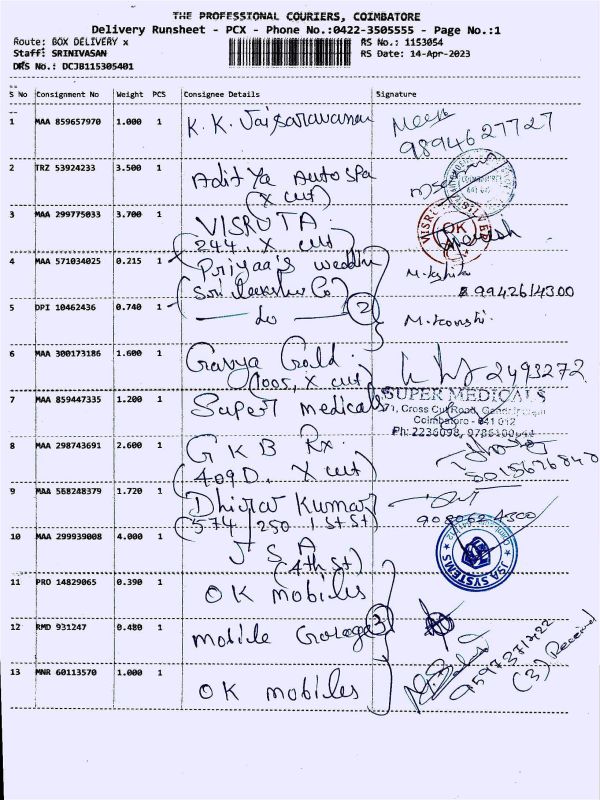 THE PROFESSIONAL COURIERS, COIMBATORE
Delivery Runsheet - PCX - Phone No.:0422-3505555 - Page No.:1
Route: BOX DELIVERY x
RS No.: 1153054
Staff: SRINIVASAN
RS Date: 14-Apr-2023
DRS No.: DCJB115305401
S No Consignment No Weight PCS Consignee Details Signature
1 MAA 859657970 1.000 1 K. K. Jaisaravanan
9894627727
2 TRZ 53924233 3.500 1 Aditya Auto Spa
(X cut)
3 MAA 299775033 3.700 1 VISRUTA.
(244. X cut)
VISRUTA SILVER
OK
4 MAA 571034025 0.215 1 Priyaa's
(Sri Co)
9942614300
5 DPI 10462436 0.740 1 — do — 2
6 MAA 300173186 1.600 1 Gold.
(1005, X cut)
2493272
7 MAA 859447335 1.200 1 Super medicals
SUPER MEDICALS
71, Cross Cut Road,
Coimbatore - 641 012
Ph: 2236098,
8 MAA 298743691 2.600 1 GKB Rx.
(409D. X cut)
9 MAA 568248379 1.720 1 Kumar
(574/250 1st St)
10 MAA 299939008 4.000 1 JSA
(4th St)
JSA SYSTEMS
11 PRO 14829065 0.390 1 OK mobiles
12 RMD 931247 0.480 1 mobile Garage 3
13 MNR 60113570 1.000 1 OK mobiles
(3) Received